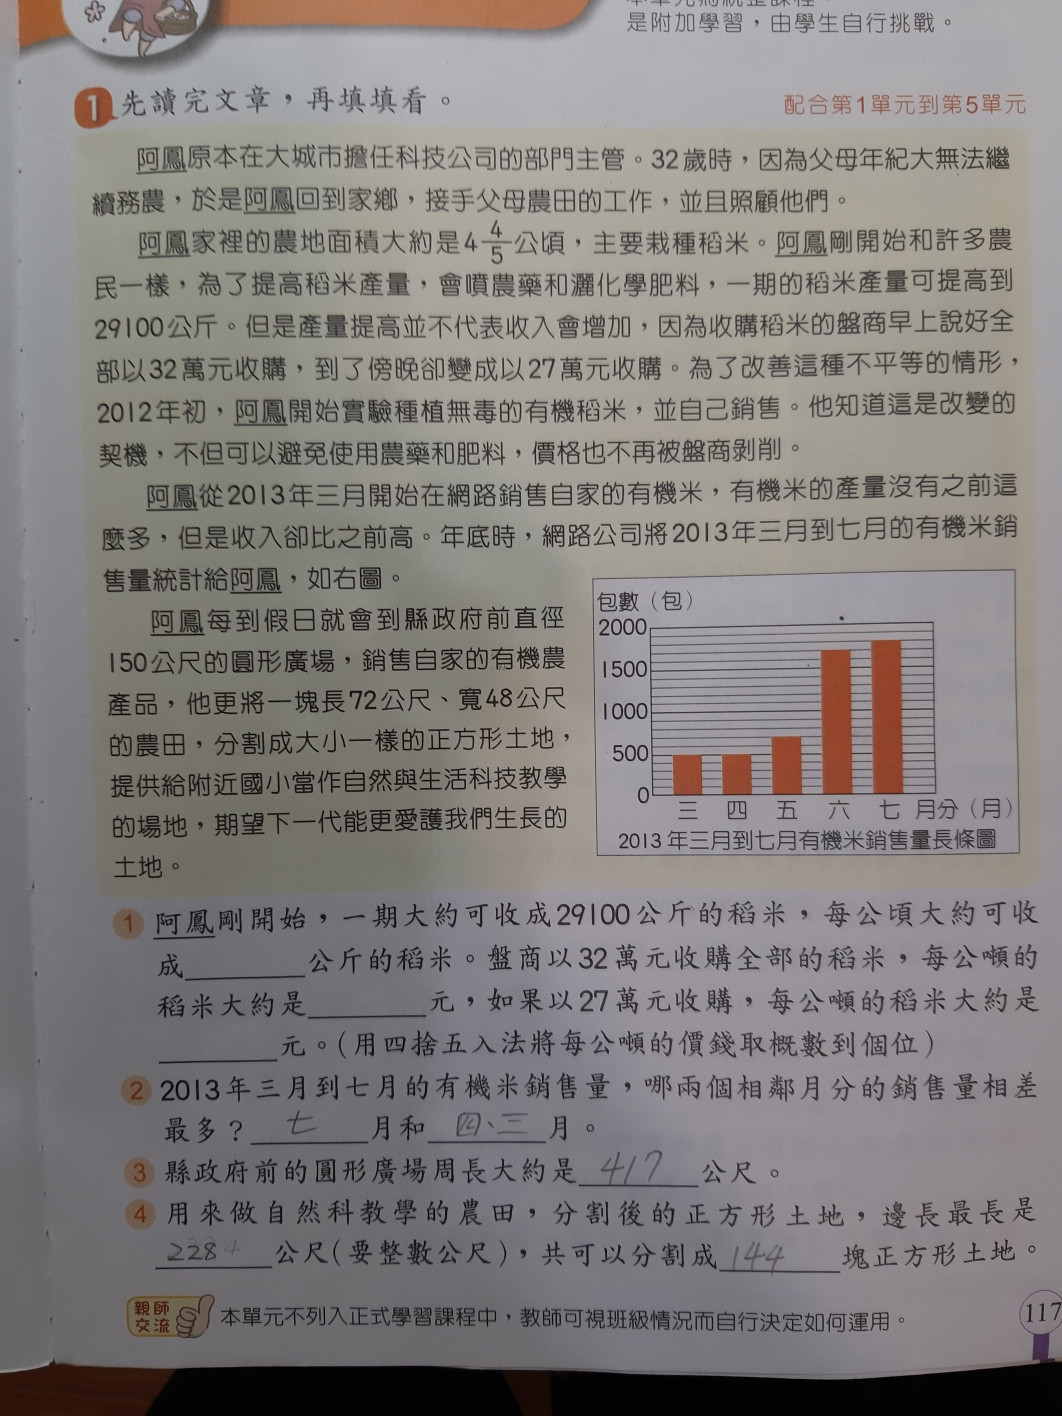 是附加學習，由學生自行挑戰。
1 先讀完文章，再填填看。
配合第1單元到第5單元
阿鳳原本在大城市擔任科技公司的部門主管。32歲時，因為父母年紀大無法繼
續務農，於是阿鳳回到家鄉，接手父母農田的工作，並且照顧他們。
阿鳳家裡的農地面積大約是4 4/5公頃，主要栽種稻米。阿鳳剛開始和許多農
民一樣，為了提高稻米產量，會噴農藥和灑化學肥料，一期的稻米產量可提高到
29100公斤。但是產量提高並不代表收入會增加，因為收購稻米的盤商早上說好全
部以32萬元收購，到了傍晚卻變成以27萬元收購。為了改善這種不平等的情形，
2012年初，阿鳳開始實驗種植無毒的有機稻米，並自己銷售。他知道這是改變的
契機，不但可以避免使用農藥和肥料，價格也不再被盤商剝削。
阿鳳從2013年三月開始在網路銷售自家的有機米，有機米的產量沒有之前這
麼多，但是收入卻比之前高。年底時，網路公司將2013年三月到七月的有機米銷
售量統計給阿鳳，如右圖。
阿鳳每到假日就會到縣政府前直徑
150公尺的圓形廣場，銷售自家的有機農
產品，他更將一塊長72公尺、寬48公尺
的農田，分割成大小一樣的正方形土地，
提供給附近國小當作自然與生活科技教學
的場地，期望下一代能更愛護我們生長的
土地。
包數（包）
2000
1500
1000
500
0
三 四 五 六 七 月分（月）
2013年三月到七月有機米銷售量長條圖
1 阿鳳剛開始，一期大約可收成29100公斤的稻米，每公頃大約可收
成________公斤的稻米。盤商以32萬元收購全部的稻米，每公噸的
稻米大約是________元，如果以27萬元收購，每公噸的稻米大約是
________元。（用四捨五入法將每公噸的價錢取概數到個位）
2 2013年三月到七月的有機米銷售量，哪兩個相鄰月分的銷售量相差
最多？七月和四、三月。
3 縣政府前的圓形廣場周長大約是417公尺。
4 用來做自然科教學的農田，分割後的正方形土地，邊長最長是
2284公尺（要整數公尺），共可以分割成144塊正方形土地。
親師交流 本單元不列入正式學習課程中，教師可視班級情況而自行決定如何運用。
117